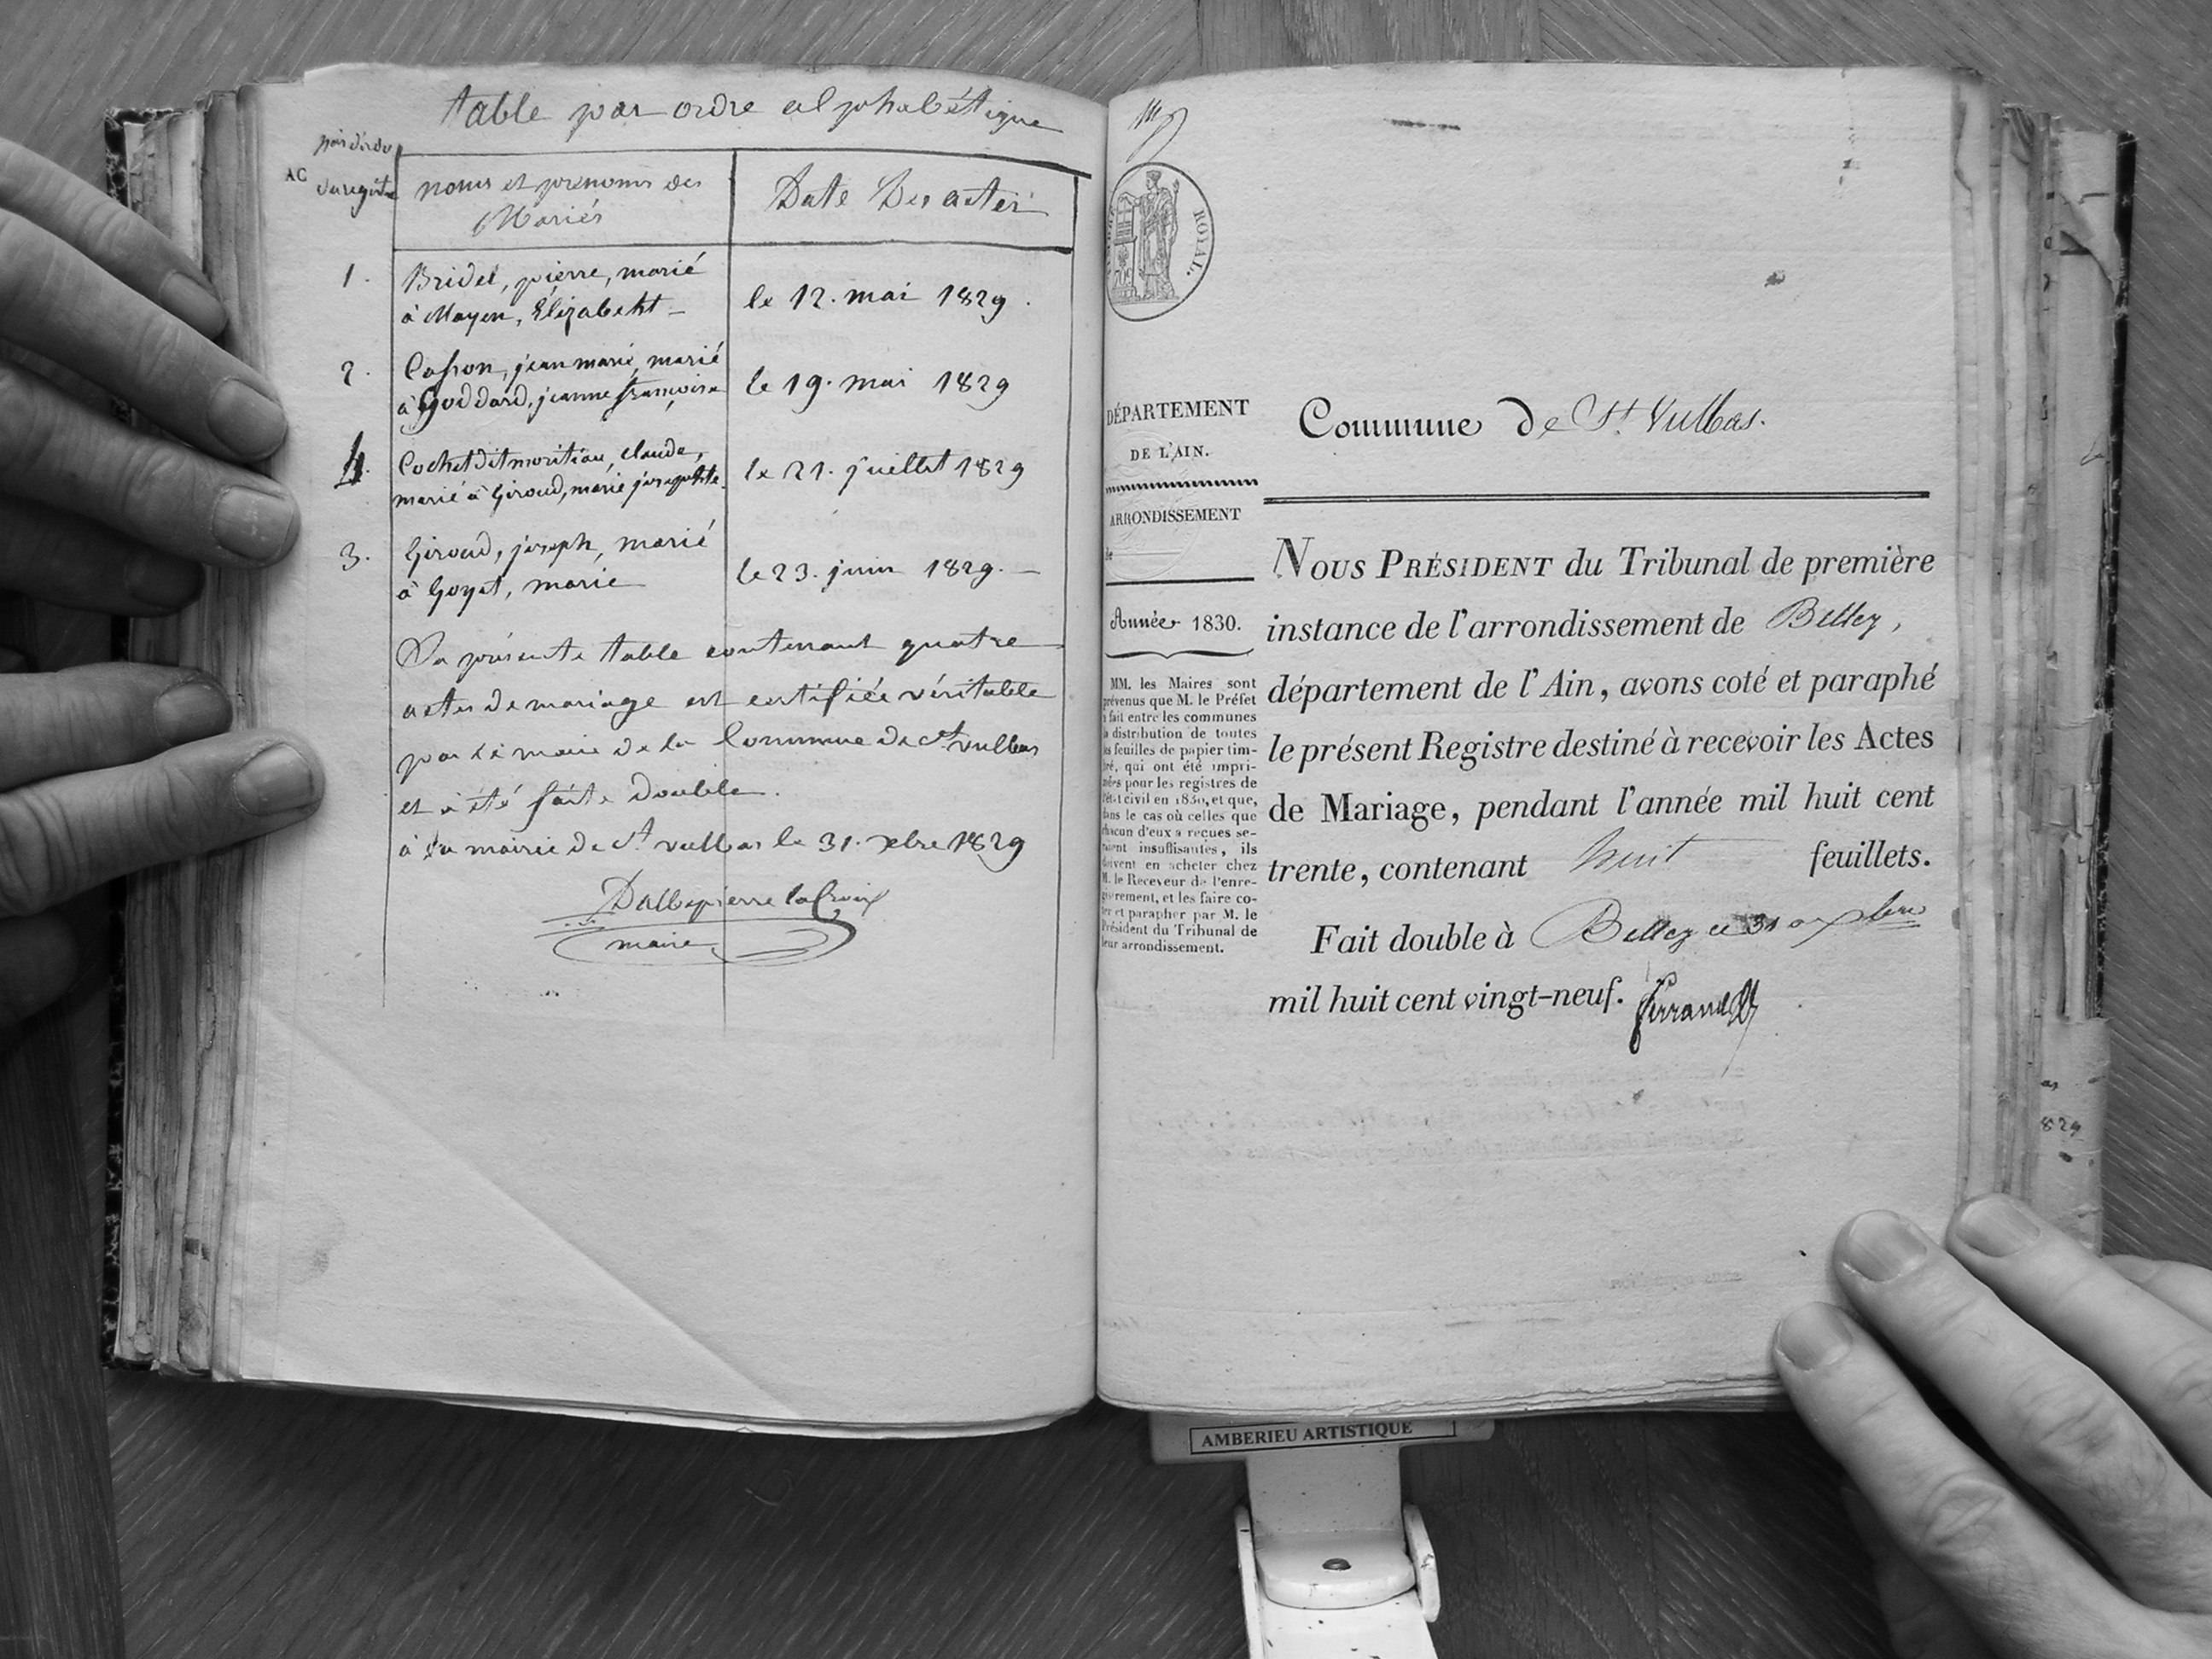 table par ordre alphabétique
AC
du registre
noms et prénoms des
Mariés
Date Des actes
1.
Bridel, pierre, marié
à Mayen, Élizabeht
le 12. mai 1829.
2.
Casson, jean marie, marié
à Goddard, jeanne françoise
le 19. mai 1829
4.
Cochet dit moritian, claude,
marié à Giroud, marie josephte
le 21. juillet 1829
3.
Giroud, joseph, marié
à Goyet, marie
le 23. juin 1829.
La présente table contenant quatre
actes de mariage est certifiée véritable
par le maire de la Commune de St vulbas
et à été faite double.
à la mairie de St vulbas le 31. xbre 1829
Dallepierre laCroix
maire
ROYAL.
DÉPARTEMENT
DE L'AIN.
ARRONDISSEMENT
de
Année 1830.
MM. les Maires sont
prévenus que M. le Préfet
a fait entre les communes
la distribution de toutes
les feuilles de papier tim-
bré, qui ont été impri-
mées pour les registres de
l'état civil en 1830, et que,
dans le cas où celles que
chacun d'eux a reçues se-
raient insuffisantes, ils
doivent en acheter chez
M. le Receveur de l'enre-
gistrement, et les faire co-
ter et parapher par M. le
Président du Tribunal de
leur arrondissement.
Commune de St. Vulbas.
NOUS PRÉSIDENT du Tribunal de première
instance de l'arrondissement de Belley,
département de l'Ain, avons coté et paraphé
le présent Registre destiné à recevoir les Actes
de Mariage, pendant l'année mil huit cent
trente, contenant huit feuillets.
Fait double à Belley ce 31 xbre
mil huit cent vingt-neuf.
829
AMBERIEU ARTISTIQUE